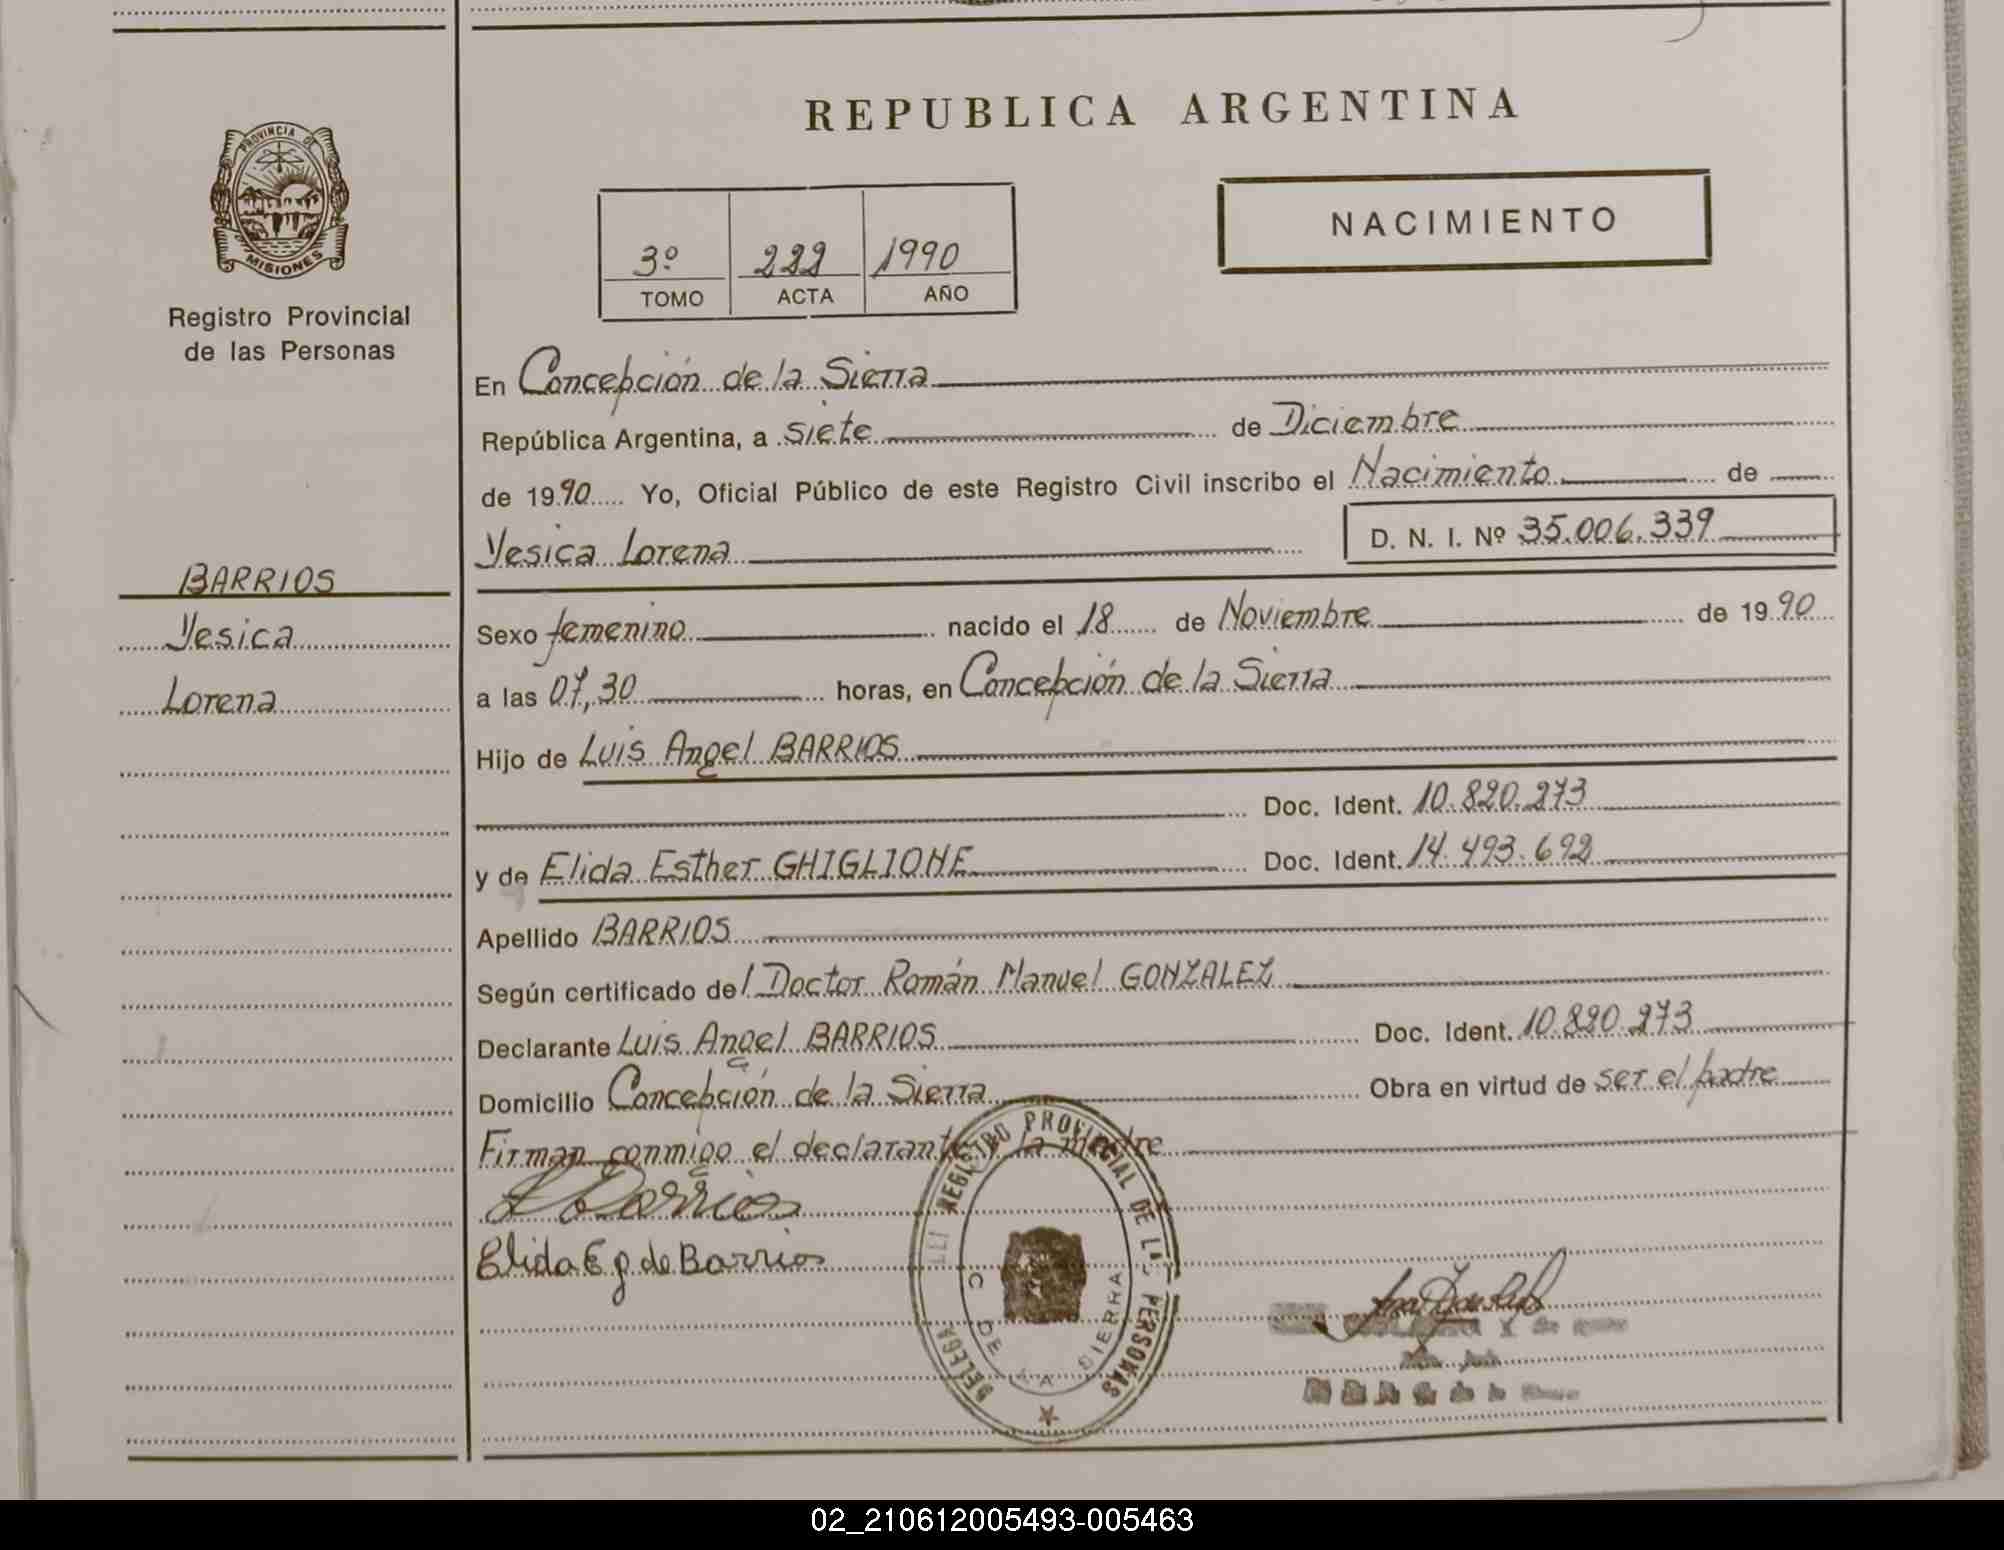 REPUBLICA ARGENTINA
PROVINCIA DE
MISIONES
Registro Provincial
de las Personas
NACIMIENTO
3º 222 1990
TOMO ACTA AÑO
En Concepción de la Sierra
República Argentina, a siete de Diciembre
de 1990 Yo, Oficial Público de este Registro Civil inscribo el Nacimiento de
Yesica Lorena D. N. I. Nº 35.006.339
BARRIOS
Yesica
Lorena
Sexo femenino nacido el 18 de Noviembre de 1990
a las 07,30 horas, en Concepción de la Sierra
Hijo de Luis Angel BARRIOS
Doc. Ident. 10.820.273
y de Elida Esther GHIGLIONE Doc. Ident. 14.493.692
Apellido BARRIOS
Según certificado del Doctor Román Manuel GONZALEZ
Declarante Luis Angel BARRIOS Doc. Ident. 10.820.273
Domicilio Concepción de la Sierra Obra en virtud de ser el padre
Firman conmigo el declarante y la madre
L Barrios
Elida E g. de Barrios
REGISTRO PROVINCIAL DE LAS PERSONAS
DELEGA
C DE LA SIERRA
02_210612005493-005463